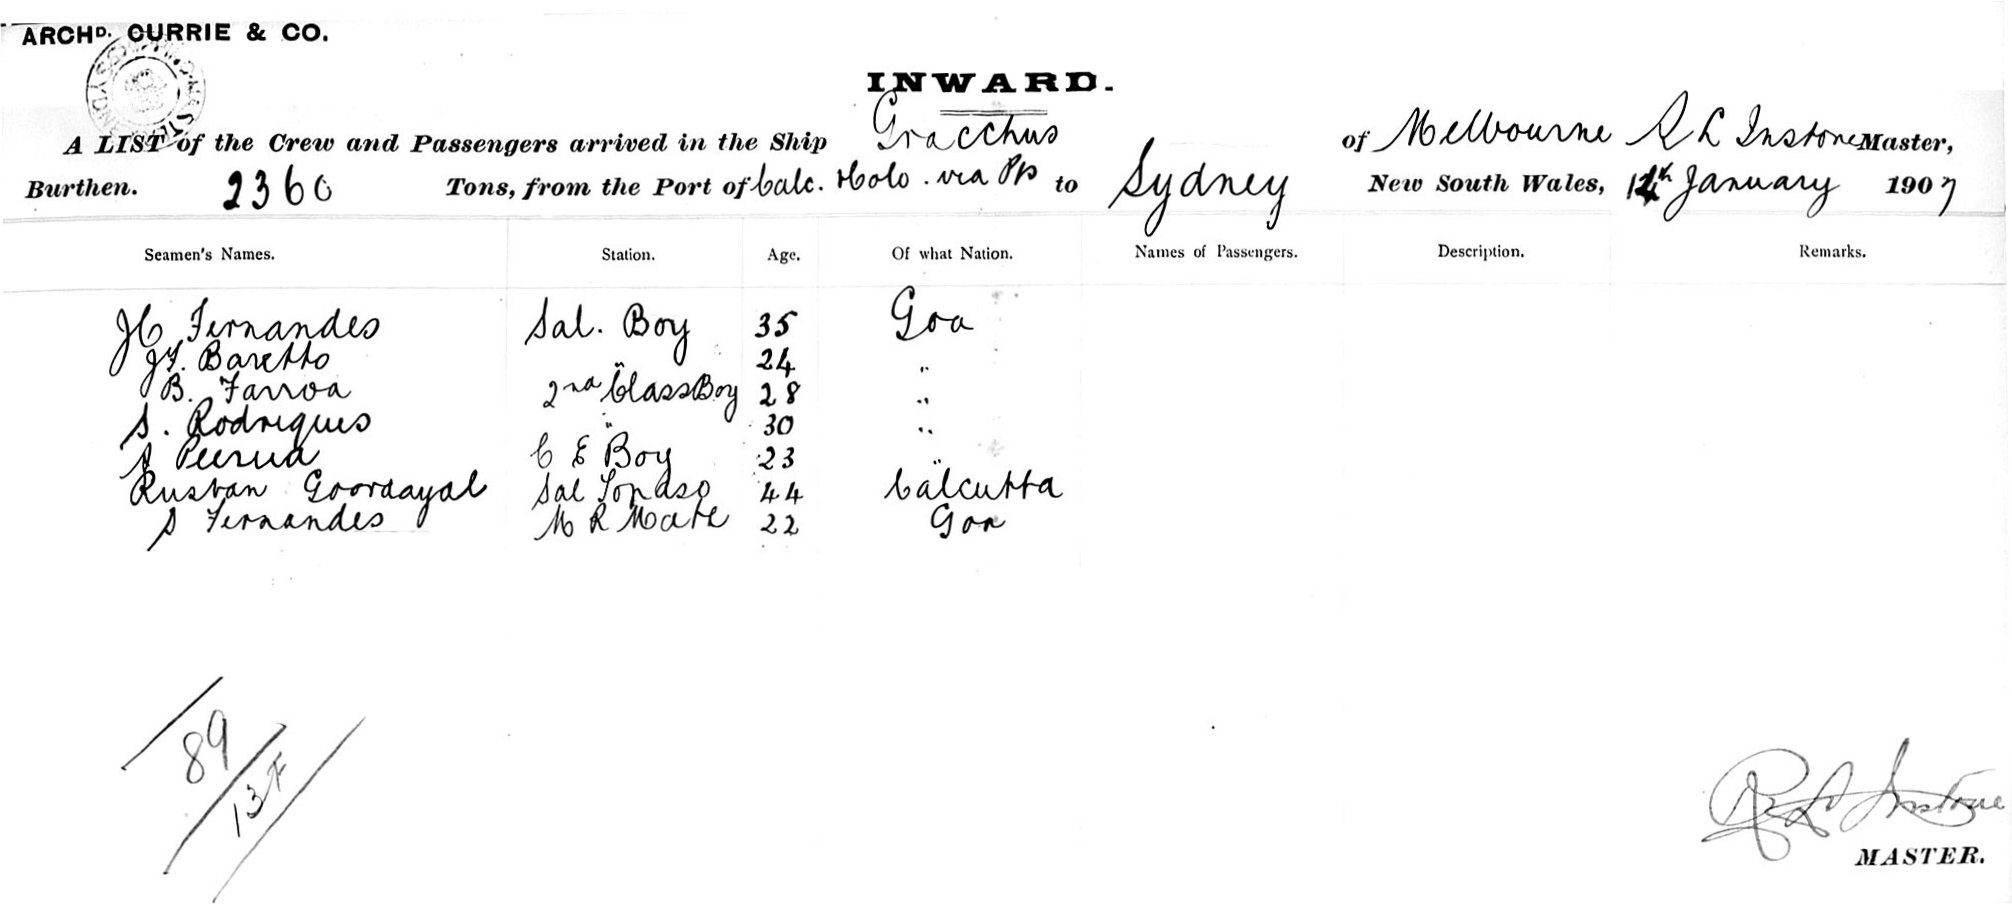 ARCHD. CURRIE & CO.
INWARD.
A LIST of the Crew and Passengers arrived in the Ship Gracchus of Melbourne R L Instone Master,
Burthen. 2360 Tons, from the Port of Calc. via Pts to Sydney New South Wales, 14th January 1907
Seamen's Names. Station. Age. Of what Nation. Names of Passengers. Description. Remarks.
JC Fernandes Sal. Boy 35 Goa
JF. Baretto " 24 "
B. Farroa 2nd Class Boy 28 "
S. Rodrigues " 30 "
S Peerua C E Boy 23 "
Rustan Goordayal Sal Topaso 44 Calcutta
S Fernandes M R Mate 22 Goa
89
13F
R L Instone
MASTER.